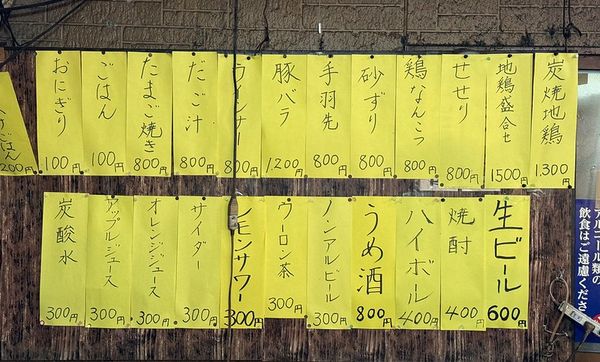 炭焼地鶏 1,300円
地鶏盛合せ 1500円
せせり 800円
鶏なんこつ 800円
砂ずり 800円
手羽先 800円
豚バラ 1,200円
ウインナー 800円
だご汁 800円
たまご焼き 800円
ごはん 100円
おにぎり 100円
ごはん 200円
生ビール 600円
焼酎 400円
ハイボール 400円
うめ酒 800円
ノンアルビール 300円
ウーロン茶 300円
レモンサワー 300円
サイダー 300円
オレンジジュース 300円
アップルジュース 300円
炭酸水 300円
アルコール類の
飲食はご遠慮くださ